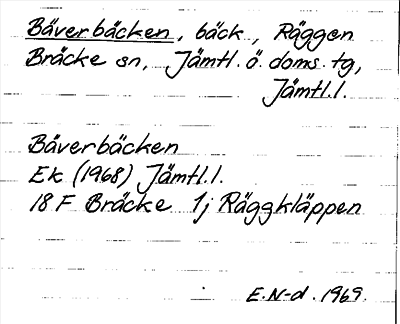 Bäverbäcken, bäck, Räggen
Bräcke sn, Jämtl. ö. doms. tg,
Jämtl.l.
Bäverbäcken
Ek (1968) Jämtl.l.
18 F Bräcke 1j Räggkläppen
E.N-d. 1969.